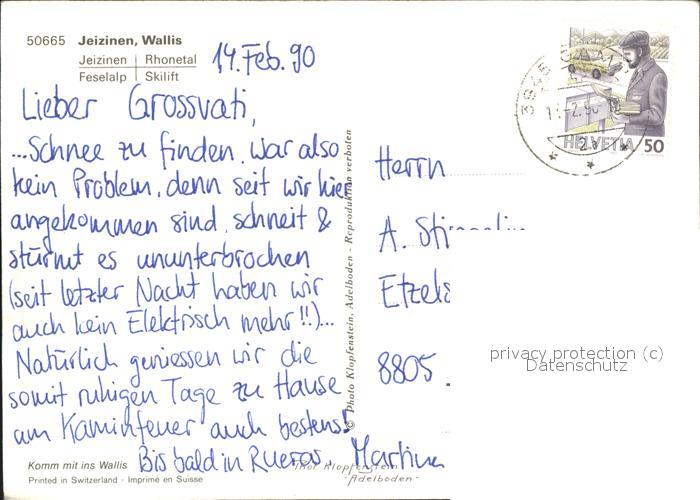 50665 Jeizinen, Wallis
Jeizinen | Rhonetal
Feselalp | Skilift
14. Feb. 90
Lieber Grossvati,
...Schnee zu finden, war also
kein Problem, denn seit wir hier
angekommen sind, schneit &
stürmt es ununterbrochen
(seit letzter Nacht haben wir
auch kein Elektrisch mehr!!)...
Natürlich geniessen wir die
somit ruhigen Tage zu Hause
am Kaminfeuer auch bestens!
Bis bald in Rueras, Martina
Komm mit ins Wallis
Printed in Switzerland - Imprimé en Suisse
© Photo Klopfenstein, Adelboden - Reproduktion verboten
Thor Klopfenstein
-Adelboden-
3945 GAM
-2.90
HELVETIA 50
Herrn
A.
8805
privacy protection (c)
Datenschutz